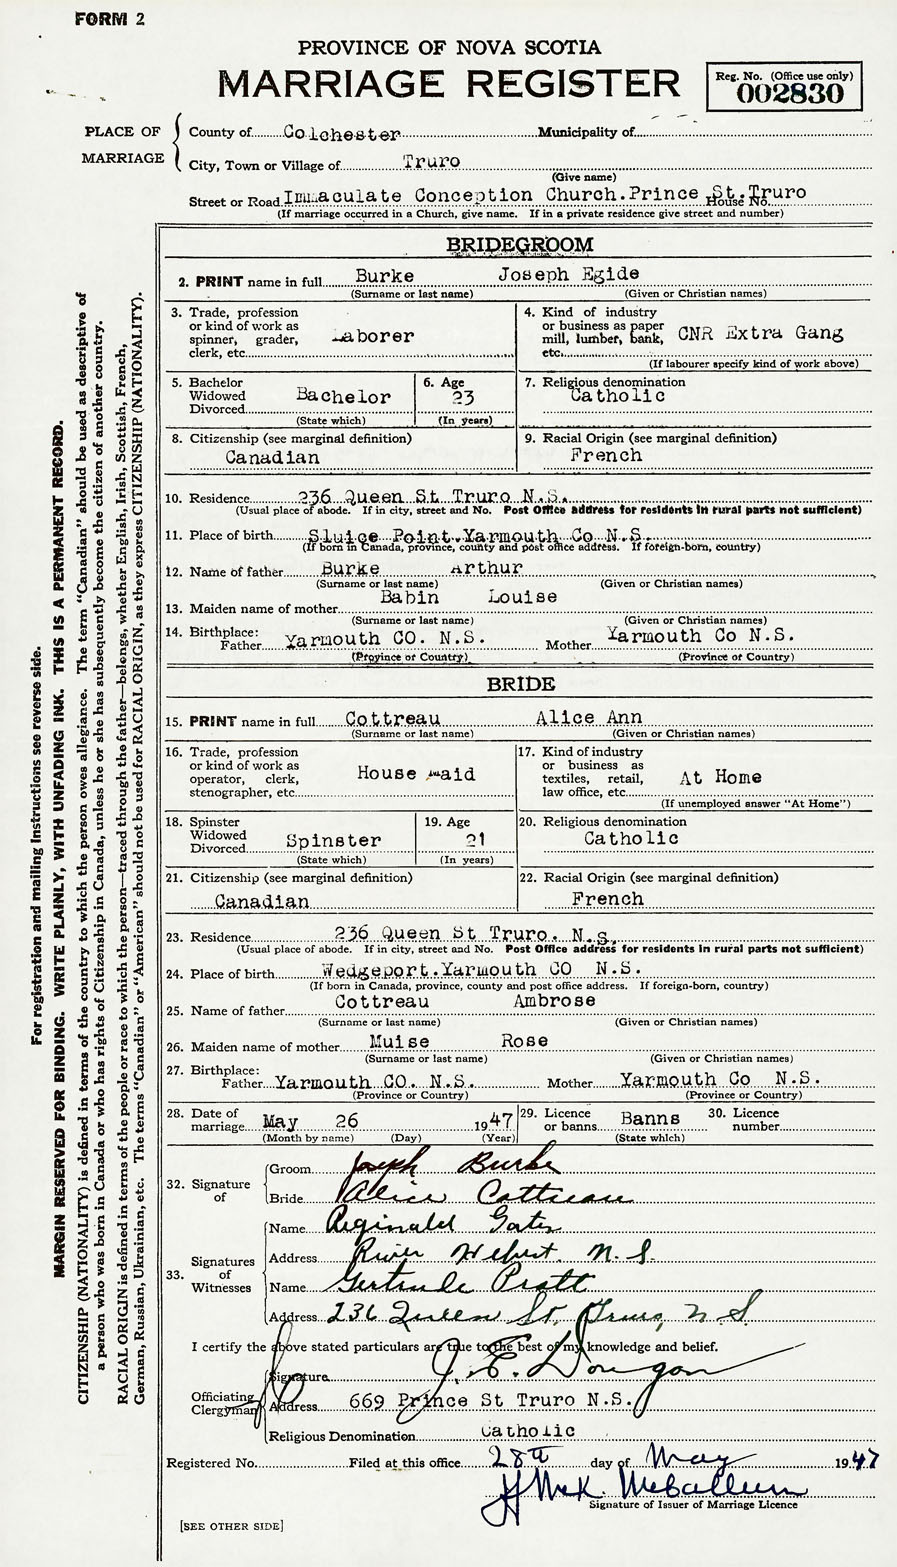 FORM 2
PROVINCE OF NOVA SCOTIA
MARRIAGE REGISTER
Reg. No. (Office use only)
002830
PLACE OF MARRIAGE
County of Colchester Municipality of
City, Town or Village of Truro
(Give name)
Street or Road Immaculate Conception Church.Prince St.Truro House No.
(If marriage occurred in a Church, give name. If in a private residence give street and number)
BRIDEGROOM
2. PRINT name in full Burke Joseph Egide
(Surname or last name) (Given or Christian names)
3. Trade, profession or kind of work as spinner, grader, clerk, etc. Laborer
4. Kind of industry or business as paper mill, lumber, bank, etc. CNR Extra Gang
(If labourer specify kind of work above)
5. Bachelor Widowed Divorced Bachelor
(State which)
6. Age 23
(In years)
7. Religious denomination
Catholic
8. Citizenship (see marginal definition)
Canadian
9. Racial Origin (see marginal definition)
French
10. Residence 236 Queen St Truro N.S.
(Usual place of abode. If in city, street and No. Post Office address for residents in rural parts not sufficient)
11. Place of birth Sluice Point.Yarmouth Co N.S.
(If born in Canada, province, county and post office address. If foreign-born, country)
12. Name of father Burke Arthur
(Surname or last name) (Given or Christian names)
13. Maiden name of mother Babin Louise
(Surname or last name) (Given or Christian names)
14. Birthplace: Father Yarmouth CO. N.S. Mother Yarmouth Co N.S.
(Province or Country) (Province or Country)
BRIDE
15. PRINT name in full Cottreau Alice Ann
(Surname or last name) (Given or Christian names)
16. Trade, profession or kind of work as operator, clerk, stenographer, etc. House maid
17. Kind of industry or business as textiles, retail, law office, etc. At Home
(If unemployed answer "At Home")
18. Spinster Widowed Divorced Spinster
(State which)
19. Age 21
(In years)
20. Religious denomination
Catholic
21. Citizenship (see marginal definition)
Canadian
22. Racial Origin (see marginal definition)
French
23. Residence 236 Queen St Truro. N.S.
(Usual place of abode. If in city, street and No. Post Office address for residents in rural parts not sufficient)
24. Place of birth Wedgeport.Yarmouth CO N.S.
(If born in Canada, province, county and post office address. If foreign-born, country)
25. Name of father Cottreau Ambrose
(Surname or last name) (Given or Christian names)
26. Maiden name of mother Muise Rose
(Surname or last name) (Given or Christian names)
27. Birthplace: Father Yarmouth CO. N.S. Mother Yarmouth Co N.S.
(Province or Country) (Province or Country)
28. Date of marriage May 26 1947
(Month by name) (Day) (Year)
29. Licence or banns Banns
(State which)
30. Licence number
32. Signature of
Groom Joseph Burke
Bride Alice Cottreau
33. Signatures of Witnesses
Name Reginald
Address River Hebert. N.S.
Name Gertrude Pratt
Address 236 Queen St, Truro, N S.
I certify the above stated particulars are true to the best of my knowledge and belief.
Officiating Clergyman
Signature J. E. Dougan
Address 669 Prince St Truro N.S.
Religious Denomination Catholic
Registered No. Filed at this office 28th day of May 1947
McCallum
Signature of Issuer of Marriage Licence
[SEE OTHER SIDE]
For registration and mailing instructions see reverse side.
MARGIN RESERVED FOR BINDING. WRITE PLAINLY, WITH UNFADING INK. THIS IS A PERMANENT RECORD.
CITIZENSHIP (NATIONALITY) is defined in terms of the country to which the person owes allegiance. The term "Canadian" should be used as descriptive of
a person who was born in Canada or who has rights of Citizenship in Canada, unless he or she has subsequently become the citizen of another country.
RACIAL ORIGIN is defined in terms of the people or race to which the person—traced through the father—belongs, whether English, Irish, Scottish, French,
German, Russian, Ukrainian, etc. The terms "Canadian" or "American" should not be used for RACIAL ORIGIN, as they express CITIZENSHIP (NATIONALITY).